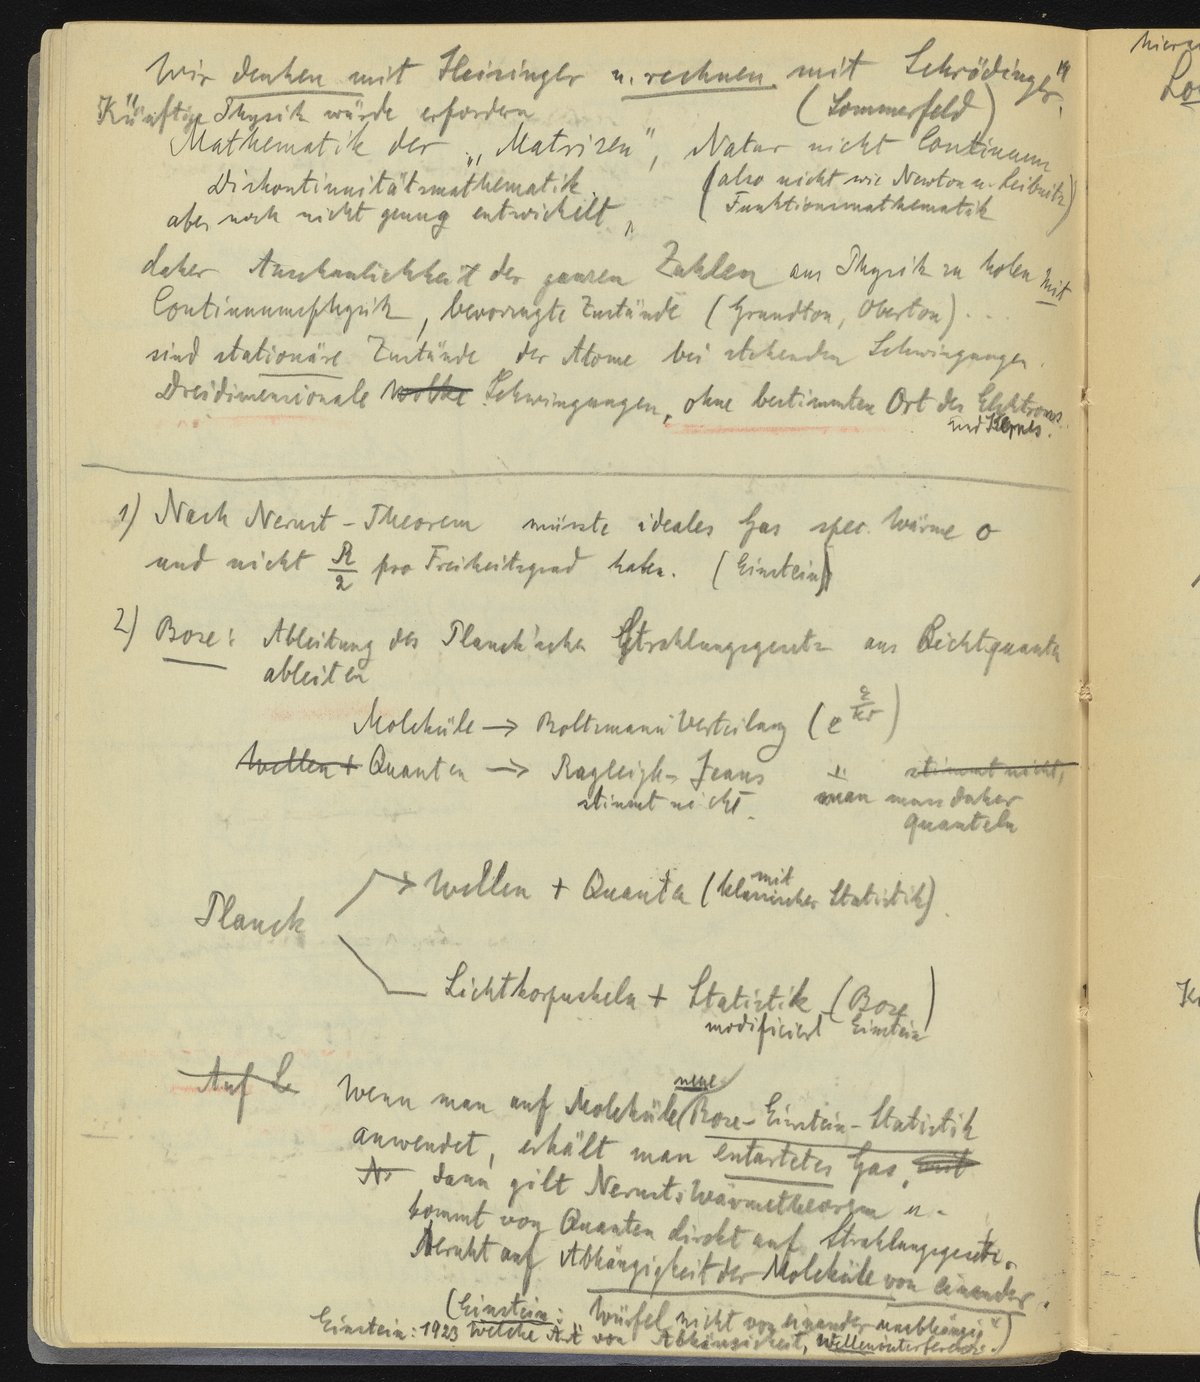 Wir denken mit Heisinger u. rechnen mit Schrödinger"
(Sommerfeld)
Künftige Physik würde erfordern
Mathematik der „Matrizen", Natur nicht Continuum
Diskontinuitätsmathematik. (also nicht wie Newton u. Leibnitz)
aber noch nicht genug entwickelt, ( Funktionsmathematik
daher Anschaulichkeit der ganzen Zahlen aus Physik zu holen mit
Continuumsphysik, bevorzugte Zustände (Grundton, Oberton)...
sind stationäre Zustände der Atome bei stehenden Schwingungen.
Dreidimensionale Wolke Schwingungen, ohne bestimmten Ort des Elektrons
und Kernes.
1) Nach Nernst-Theorem müsste ideales Gas spec. Wärme 0
und nicht R/2 pro Freiheitsgrad haben. (Einstein)
2) Bose: Ableitung des Planck'schen Strahlungsgesetz aus Lichtquanten
ableiten
Moleküle → Boltzmann Verteilung (e
Wellen + Quanten → Rayleigh-Jeans " stimmt nicht,
stimmt nicht. man muss daher
quanteln
→ Wellen + Quanten (mit klassischer Statistik).
Planck
Lichtkorpuskeln + Statistik (Bose)
modificiert Einstein
Auf L
Wenn man auf Moleküle (neue Bose-Einstein-Statistik
anwendet, erhält man entartetes Gas, mit
N dann gilt Nernsts Wärmetheorem u.
kommt von Quanten direkt auf Strahlungsgesetz.
Beruht auf Abhängigkeit der Moleküle von einander.
(Einstein: Würfel nicht von einander unabhängig")
Einstein: 1923 Welche Art von Abhängigkeit, Wellen interferenz.)
hier
Lo